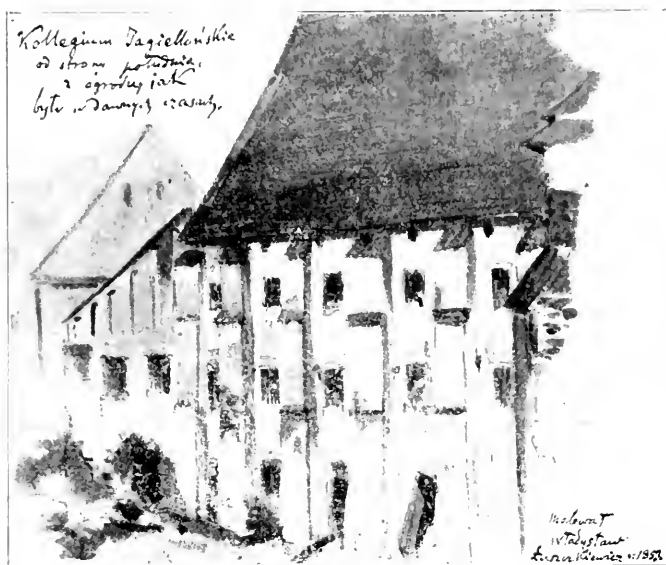 Kollegium Jagiellońskie
od strony południa,
z ogrodu, jak
było w dawnych czasach.
malował
Władysław
Łuszczkiewicz r. 185